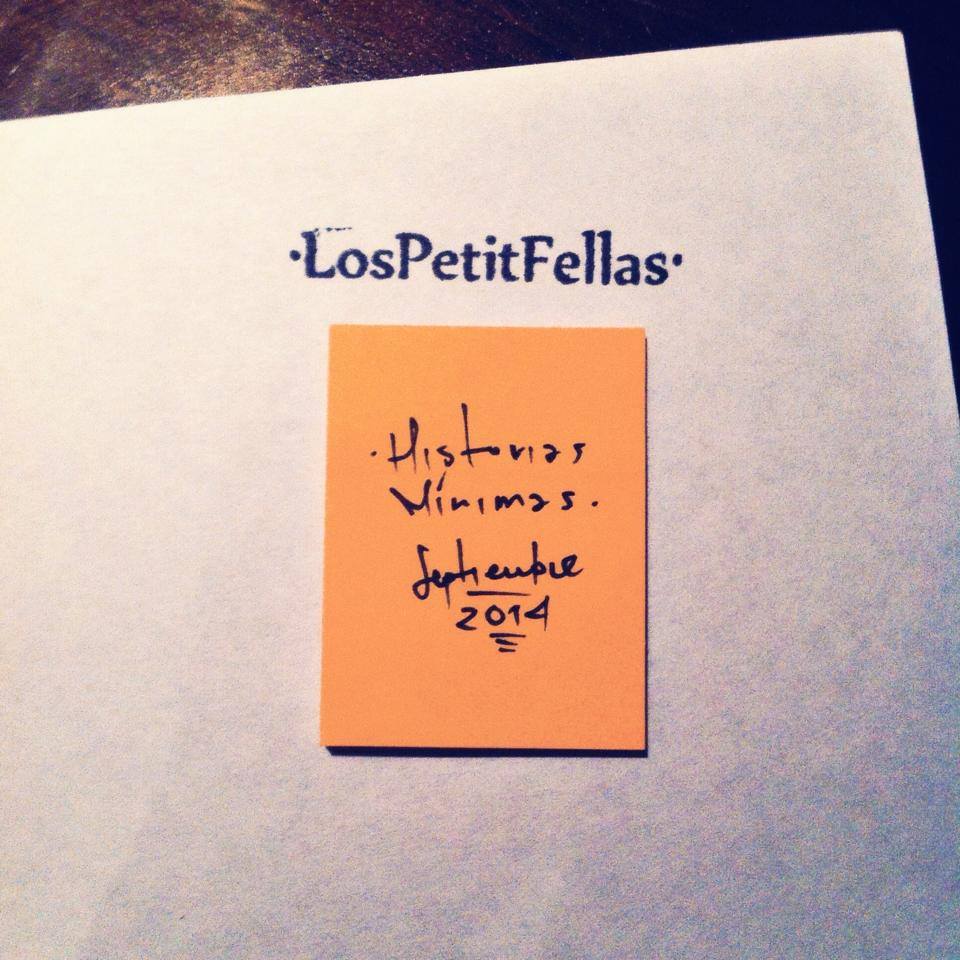 ·LosPetitFellas·
·Historias
Mínimas.
Septiembre
2014